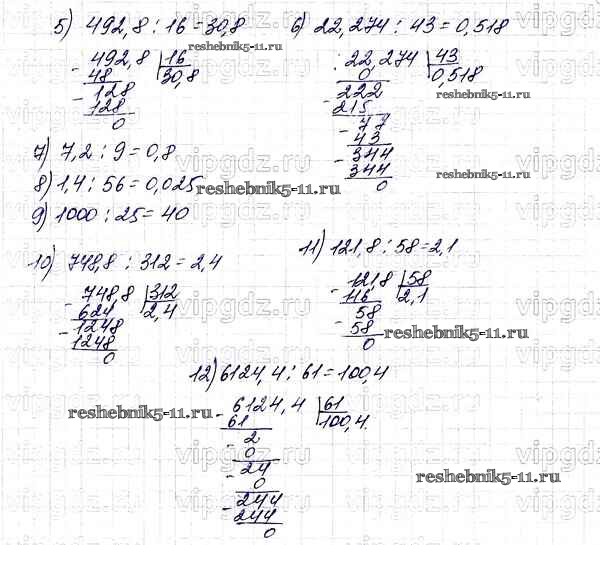 5) 492,8 : 16 = 30,8
492,8 | 16
48 30,8
128
128
0
6) 22,274 : 43 = 0,518
22,274 | 43
0 0,518
222
215
77
43
344
344
0
7) 7,2 : 9 = 0,8
8) 1,4 : 56 = 0,025
9) 1000 : 25 = 40
10) 748,8 : 312 = 2,4
748,8 | 312
624 2,4
1248
1248
0
11) 121,8 : 58 = 2,1
121,8 | 58
116 2,1
58
58
0
12) 6124,4 : 61 = 100,4
6124,4 | 61
61 100,4
2
0
24
0
244
244
0
reshebnik5-11.ru
reshebnik5-11.ru
reshebnik5-11.ru
reshebnik5-11.ru
reshebnik5-11.ru
reshebnik5-11.ru
vipgdz.ru